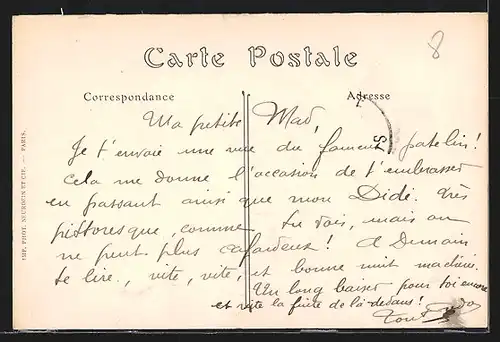 8
Carte Postale
Correspondance
Adresse
Ma petite Mad,
Je t'envoie une vue du fameux patelin!
cela me donne l'occasion de t'embrasser
en passant ainsi que mon Didi. très
pittoresque, comme tu vois, mais on
ne peut plus cafardeux! A Demain
te lire, vite, vite, et bonne nuit ma chérie.
Un long baiser pour toi encore
et vite la fuite de là-dedans!
IMP. PHOT. NEURDEIN ET CIE. — PARIS.